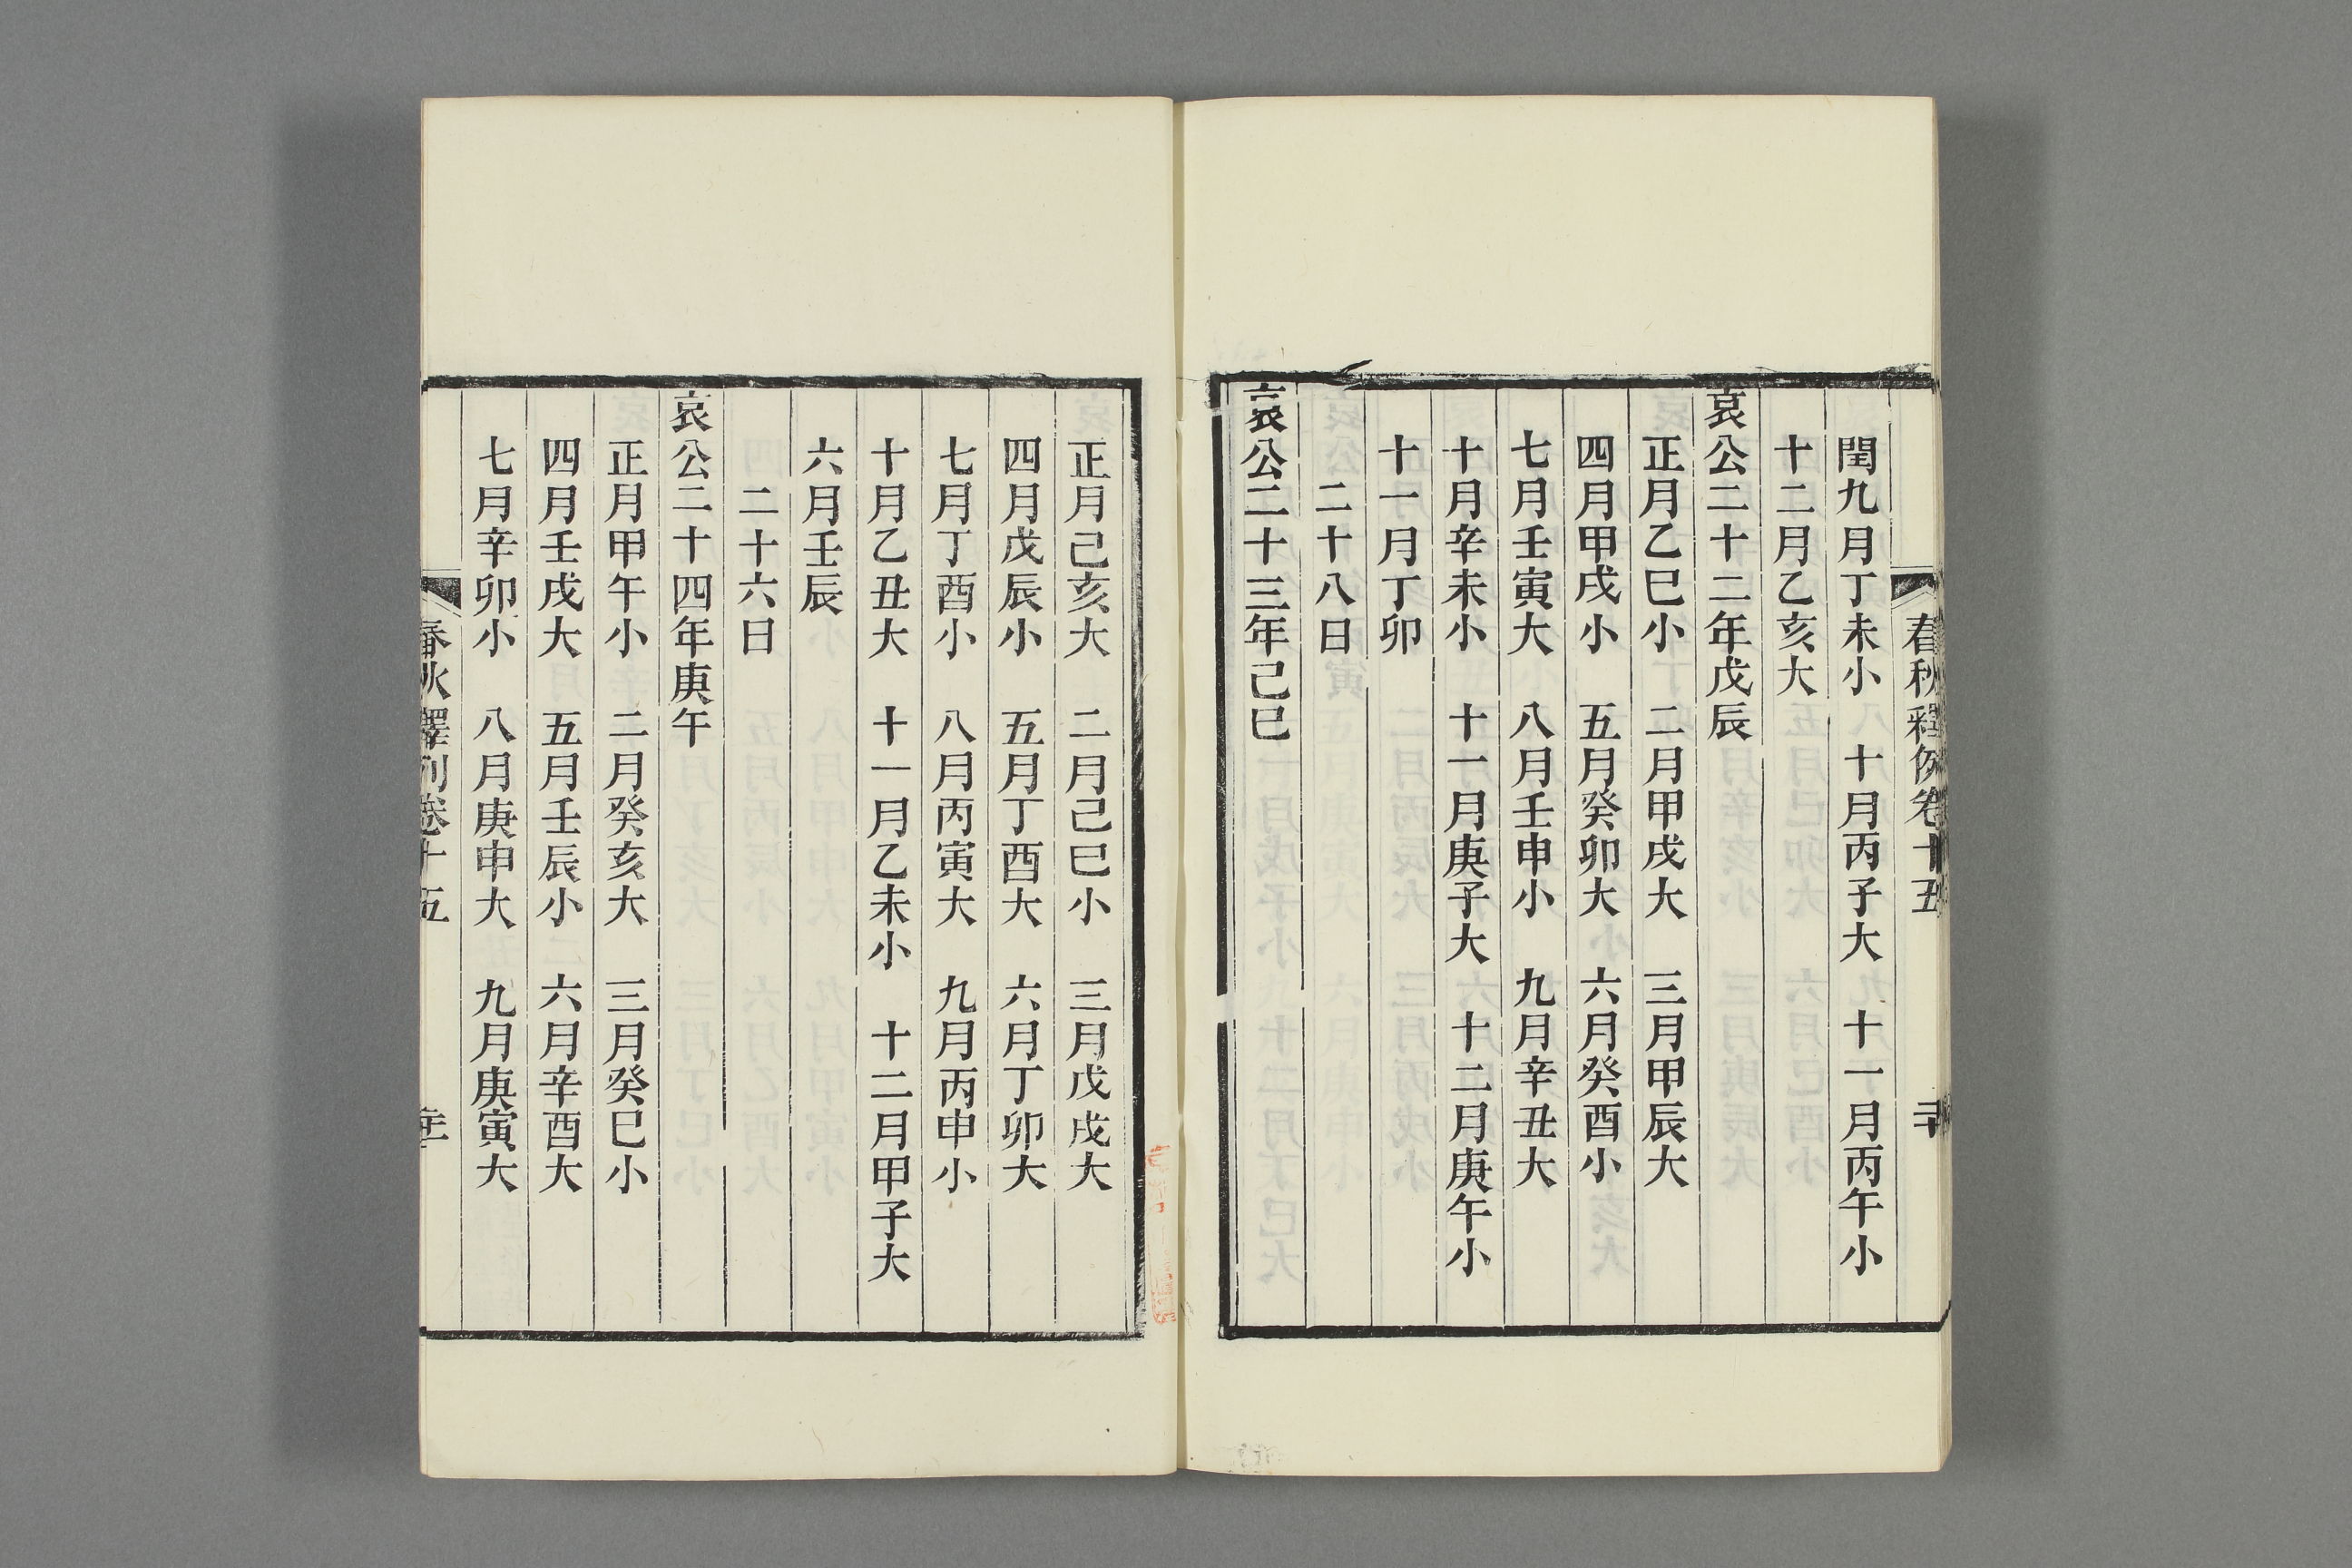 春秋釋例卷十五
閏九月丁未小　十月丙子大　十一月丙午小
十二月乙亥大
哀公二十二年戊辰
正月乙巳小　二月甲戌大　三月甲辰大
四月甲戌小　五月癸卯大　六月癸酉小
七月壬寅大　八月壬申小　九月辛丑大
十月辛未小　十一月庚子大　十二月庚午小
十一月丁卯
二十八日
哀公二十三年己巳
正月己亥大　二月己巳小　三月戊戌大
四月戊辰小　五月丁酉大　六月丁卯大
七月丁酉小　八月丙寅大　九月丙申小
十月乙丑大　十一月乙未小　十二月甲子大
六月壬辰
二十六日
哀公二十四年庚午
正月甲午小　二月癸亥大　三月癸巳小
四月壬戌大　五月壬辰小　六月辛酉大
七月辛卯小　八月庚申大　九月庚寅大
春秋釋例卷十五